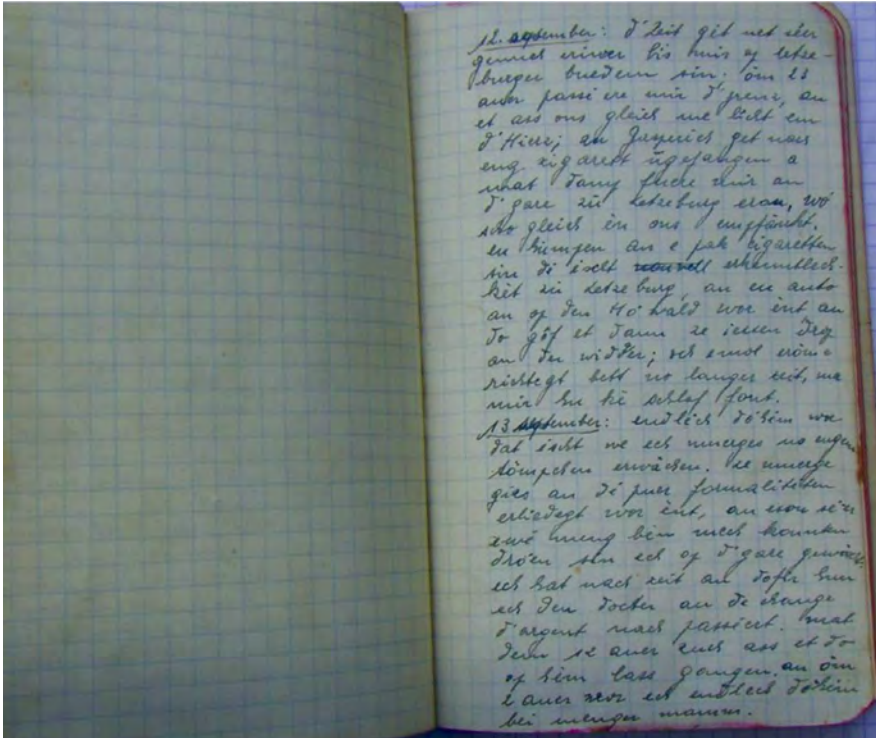 12. september: d'Zeit git net séer
genuch eriwer bis mir op letze-
buerger buedem sin. öm 23
auer passéire mir d'grenz, an
et ass ons gleich me licht em
d'Hierz; an Gasperich get nach
eng zigarett ugefangen a
mat damp fuere mir an
d'gare zu Letzeburg eran, wo
sho gleich én ons empfänkt.
en humpen an e pak zigaretten
sin di ischt erkenntlech-
két zu Letzeburg, an en auto
an op den Ho'wald wor ent an
do göf et dann ze iessen drop
an der widder; och emol eröm e
richtegt bett no langer zeit, ma
mir hu ké schlof font.
13 september: endlich dóhém wor
dat ischt we ech muerges no engem
tömpchen erwächen. ze muerge
gies an di puer formalitéten
erliedegt wor ent, an esou séer
zwé meng bén mech konnten
dróen sin ech op d'gare gewiescht.
ech hat nach zeit an dofir hun
ech den docter an de change
d'argent nach passéiert. mat
dem 12 auer zuch ass et do
op hém lass gaangen, an öm
2 auer wor ech endlech dóhém
bei menger mamm.